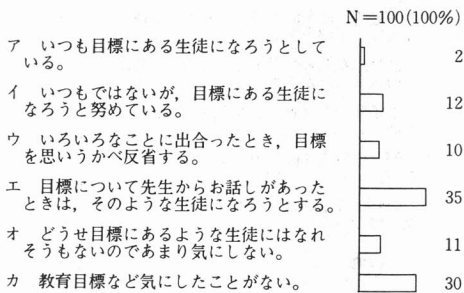 N=100(100%)
ア いつも目標にある生徒になろうとして
いる。
2
イ いつもではないが,目標にある生徒に
なろうと努めている。
12
ウ いろいろなことに出合ったとき,目標
を思いうかべ反省する。
10
エ 目標について先生からお話しがあった
ときは,そのような生徒になろうとする。
35
オ どうせ目標にあるような生徒にはなれ
そうもないのであまり気にしない。
11
カ 教育目標など気にしたことがない。
30